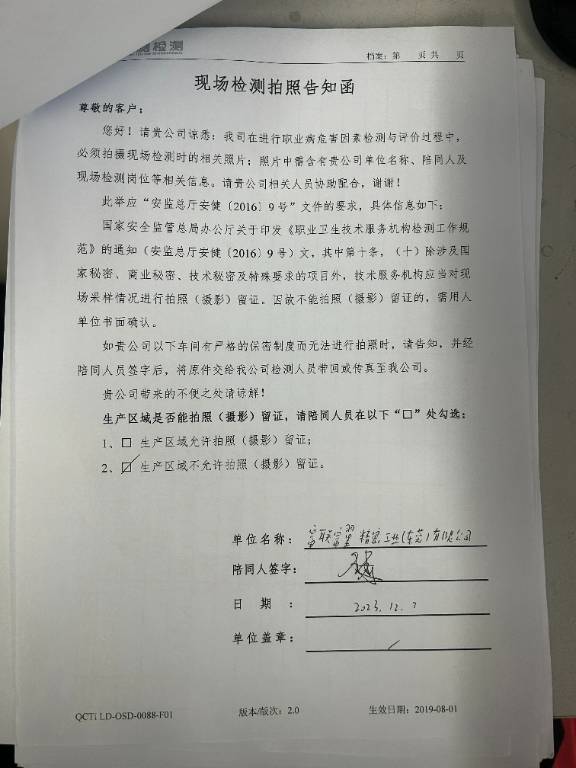 检测
档案：第 页 共 页
现场检测拍照告知函
尊敬的客户：
您好！请贵公司谅悉：我司在进行职业病危害因素检测与评价过程中，
必须拍摄现场检测时的相关照片；照片中需含有贵公司单位名称、陪同人及
现场检测岗位等相关信息。请贵公司相关人员协助配合，谢谢！
此举应“安监总厅安健〔2016〕9号”文件的要求，具体信息如下：
国家安全监管总局办公厅关于印发《职业卫生技术服务机构检测工作规
范》的通知（安监总厅安健〔2016〕9号）文，其中第十条，（十）除涉及国
家秘密、商业秘密、技术秘密及特殊要求的项目外，技术服务机构应当对现
场采样情况进行拍照（摄影）留证。因故不能拍照（摄影）留证的，需用人
单位书面确认。
如贵公司以下车间有严格的保密制度而无法进行拍照时，请告知，并经
陪同人员签字后，将原件交给我公司检测人员带回或传真至我公司。
贵公司带来的不便之处请谅解！
生产区域是否能拍照（摄影）留证，请陪同人员在以下“□”处勾选：
1、□ 生产区域允许拍照（摄影）留证；
2、☑ 生产区域不允许拍照（摄影）留证。
单位名称： 富联富翼精密工业(东莞)有限公司
陪同人签字：
日 期 ： 2023.12.7
单位盖章： /
QCTI LD-OSD-0088-F01 版本/版次：2.0 生效日期：2019-08-01